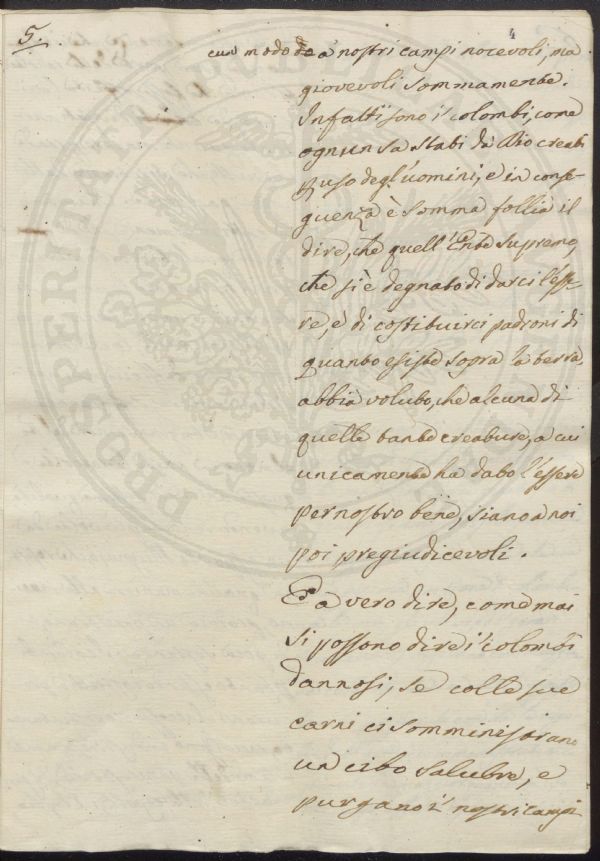 5.
4
cun modo a' nostri campi nocevoli, ma
giovevoli sommamente.
Infatti sono i' colombi, come
ognun sa stati da Dio creati
p uso degl'uomini, e in conse-
guenza è somma follia il
dire, che quell'Ente supremo,
che si è degnato di darci l'esse-
re, e di costituirci padroni di
quanto esiste sopra la terra,
abbia voluto, che alcuna di
quelle tante creature, a cui
unicamente ha dato l'essere
per nostro bene, siano a noi
poi pregiudicevoli.
E a vero dire, come mai
si possono dire i' colombi
dannosi, se colle sue
carni ci somministrano
un cibo salubre, e
purgano i' nostri campi